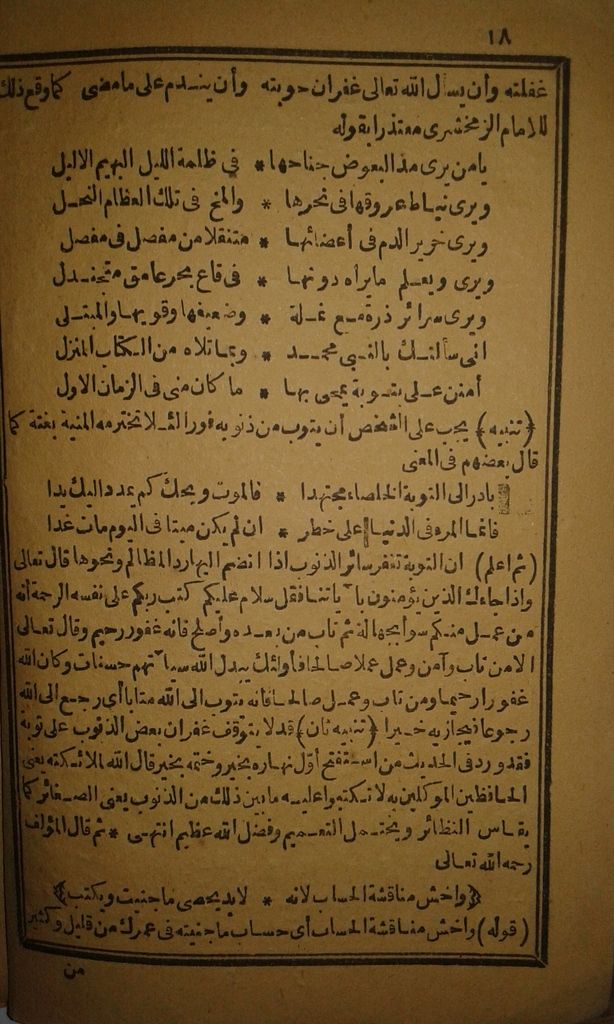 ١٨
غفلته وأن يسأل الله تعالى غفران حوبته وأن يندم على ما مضى كما وقع ذلك
للامام الزمخشرى معتذرا بقوله
يا من يرى مد البعوض جناحها * فى ظلمة الليل البهيم الاليل
ويرى نياط عروقها فى نحرها * والمخ فى تلك العظام النحل
ويرى خرير الدم فى أعضائها * متنقلا من مفصل فى مفصل
ويرى ويعلم مايراه دونها * فى قاع بحر غامق متجندل
ويرى سرائر ذرة مع نملة * وضعيفها وقويها والمبتلى
انى سألتك بالنبى محمد * وبما تلاه من الكتاب المنزل
أمنن على بتوبة يمحى بها * ما كان منى فى الزمان الاول
(تنبيه) يجب على الشخص أن يتوب من ذنوبه فورا لئلا تخترمه المنية بغتة كما
قال بعضهم فى المعنى
بادر الى التوبة الخلصاء مجتهدا * فالموت ويحك كم يمدد اليك يدا
فانما المرء فى الدنيا على خطر * ان لم يكن ميتا فى اليوم مات غدا
(ثم اعلم) ان التوبة تغفر سائر الذنوب اذا انضم اليها رد المظالم ونحوها قال تعالى
واذا جاءك الذين يؤمنون بآياتنا فقل سلام عليكم كتب ربكم على نفسه الرحمة أنه
من عمل منكم سوأ بجهالة ثم تاب من بعده وأصلح فانه غفور رحيم وقال تعالى
الا من تاب وآمن وعمل عملا صالحا فأولئك يبدل الله سيآتهم حسنات وكان الله
غفورا رحيما ومن تاب وعمل صالحا فانه يتوب الى الله متابا أى رجع الى الله
رجوعا فيجازيه خيرا (تنبيه ثان) قد لا يتوقف غفران بعض الذنوب على توبة
فقد ورد فى الحديث من استفتح أول نهاره بخير وختمه بخير قال الله لملائكته يعنى
الحافظين الموكلين به لا تكتبوا عليه ما بين ذلك من الذنوب يعنى الصغائر كما
يقاس النظائر ويحتمل التعميم وفضل الله عظيم انتهى * ثم قال المؤلف
رحمه الله تعالى
(واخش مناقشة الحساب لانه * لابد يحصى ما جنيت ويكتب)
(قوله) واخش مناقشة الحساب أى حساب ما جنيته فى عمرك من قليل وكثير
من